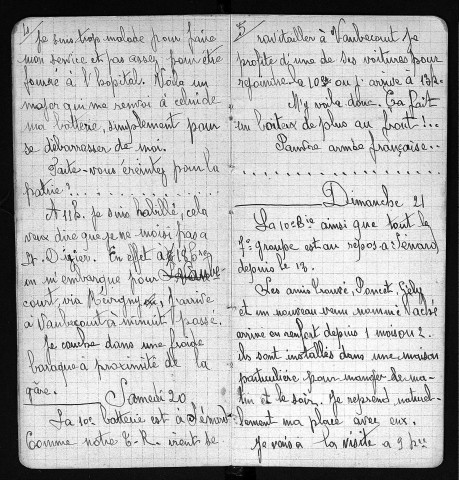 4
Je suis trop malade pour faire
mon service et pas assez pour être
fourré à l'hopital. Voila un
major qui me renvoi à celui de
ma batterie, simplement pour
se débarrasser de moi.
Faite-vous éreintez pour la
patrie! . . . . . . . . .
A 11h. je suis habillé, cela
veux dire que je ne moisi pas a
St. Dizier. En effet a 18h
on m'embarque pour
court, via Révigny, j'arrive
à Vaubecourt à minuit passé.
Je couche dans une froide
baraque à proximité de la
gare.
Samedi 20
La 10e batterie est à Sénard
Comme notre T-R. vient se
5
ravitailler à Vaubecourt je
profite d'une de ses voitures pour
rejoindre a 10h ou j'arrive à 13h.
M'y voila donc. Ça fait
un boiteux de plus au front!..
Pauvre armée française..
Dimanche 21
La 10e Bie ainsi que tout le
7e groupe est au repos a Sénard
depuis le 13.
Les amis Poncet, Gély
et un nouveau venu nommé
arrivé en renfort depuis 1 mois on 2.
ils sont installés dans une maison
particulière pour manger de ma-
tin et le soir. Je reprend naturel-
lement ma place avec eux.
Je vais a la visite a 9 h